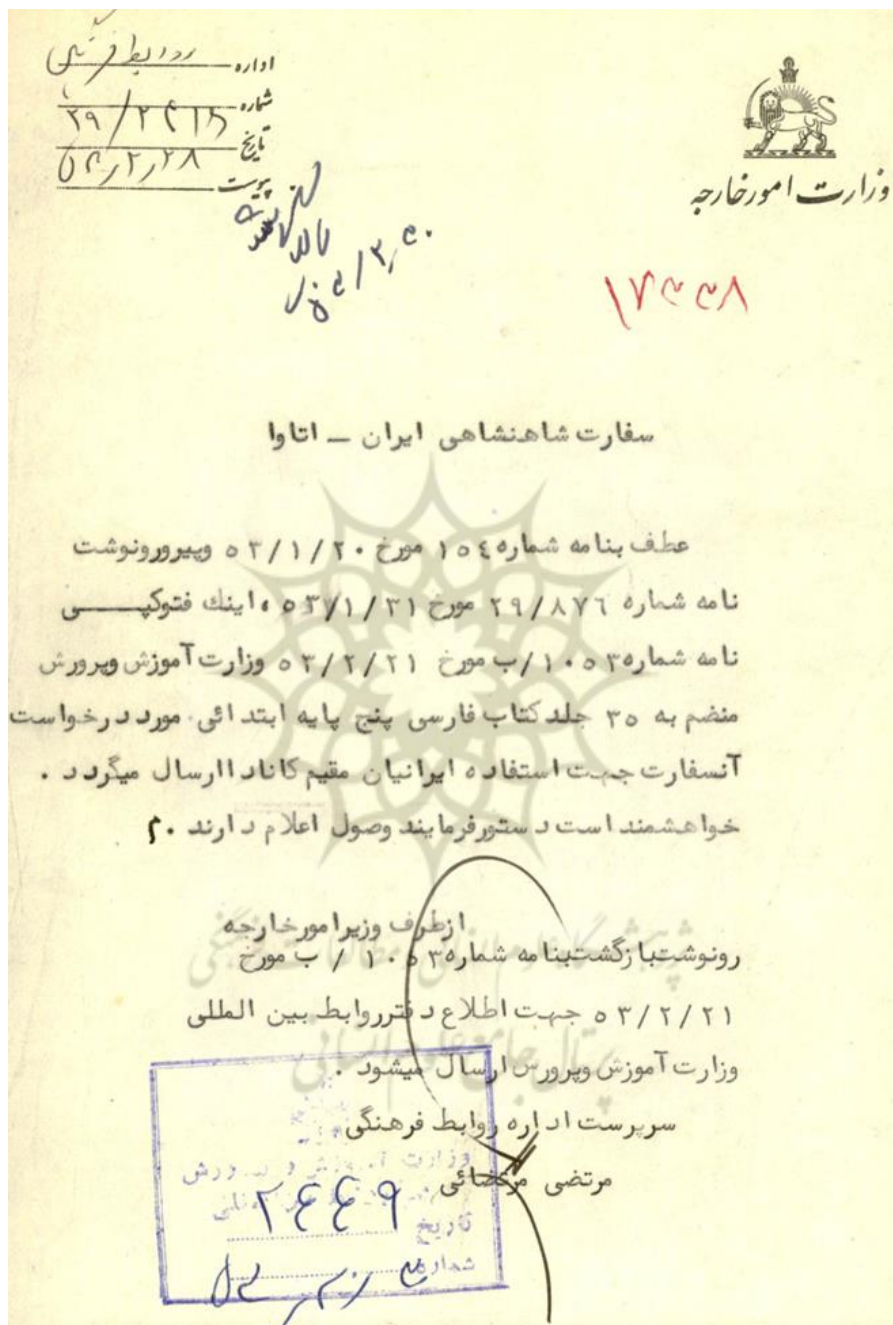 وزارت امورخارجه
اداره روابط فرهنگی
شماره
تاریخ
پیوست
۱۷۴۴۸
سفارت شاهنشاهی ایران ـ اتاوا
عطف بنامه شماره ۱۵٤ مورخ ۵۳/۱/۲۰ وپیرورونوشت
نامه شماره ۲۹/۸۷٦ مورخ ۵۳/۱/۳۱ ، اینك فتوکپـــــی
نامه شماره ۱۰۵۳/ب مورخ ۵۳/۲/۲۱ وزارت آموزش وپرورش
منضم به ۳۵ جلد کتاب فارسی پنج پایه ابتدائی مورد درخواست
آنسفارت جهت استفاده ایرانیان مقیم کانادا ارسال میگردد .
خواهشمند است دستورفرمایند وصول اعلام دارند .م
ازطرف وزیرامورخارجه
رونوشت بازگشت بنامه شماره ۱۰۵۳ / ب مورخ
۵۳/۲/۲۱ جهت اطلاع دفترروابط بین المللی
وزارت آموزش وپرورش ارسال میشود .
سرپرست اداره روابط فرهنگی
مرتضی مرتضائی
وزارت آموزش و پرورش
تاریخ ۲٤٤۹
شماره
پژوهشگاه علوم انسانی و مطالعات فرهنگی
پرتال جامع علوم انسانی